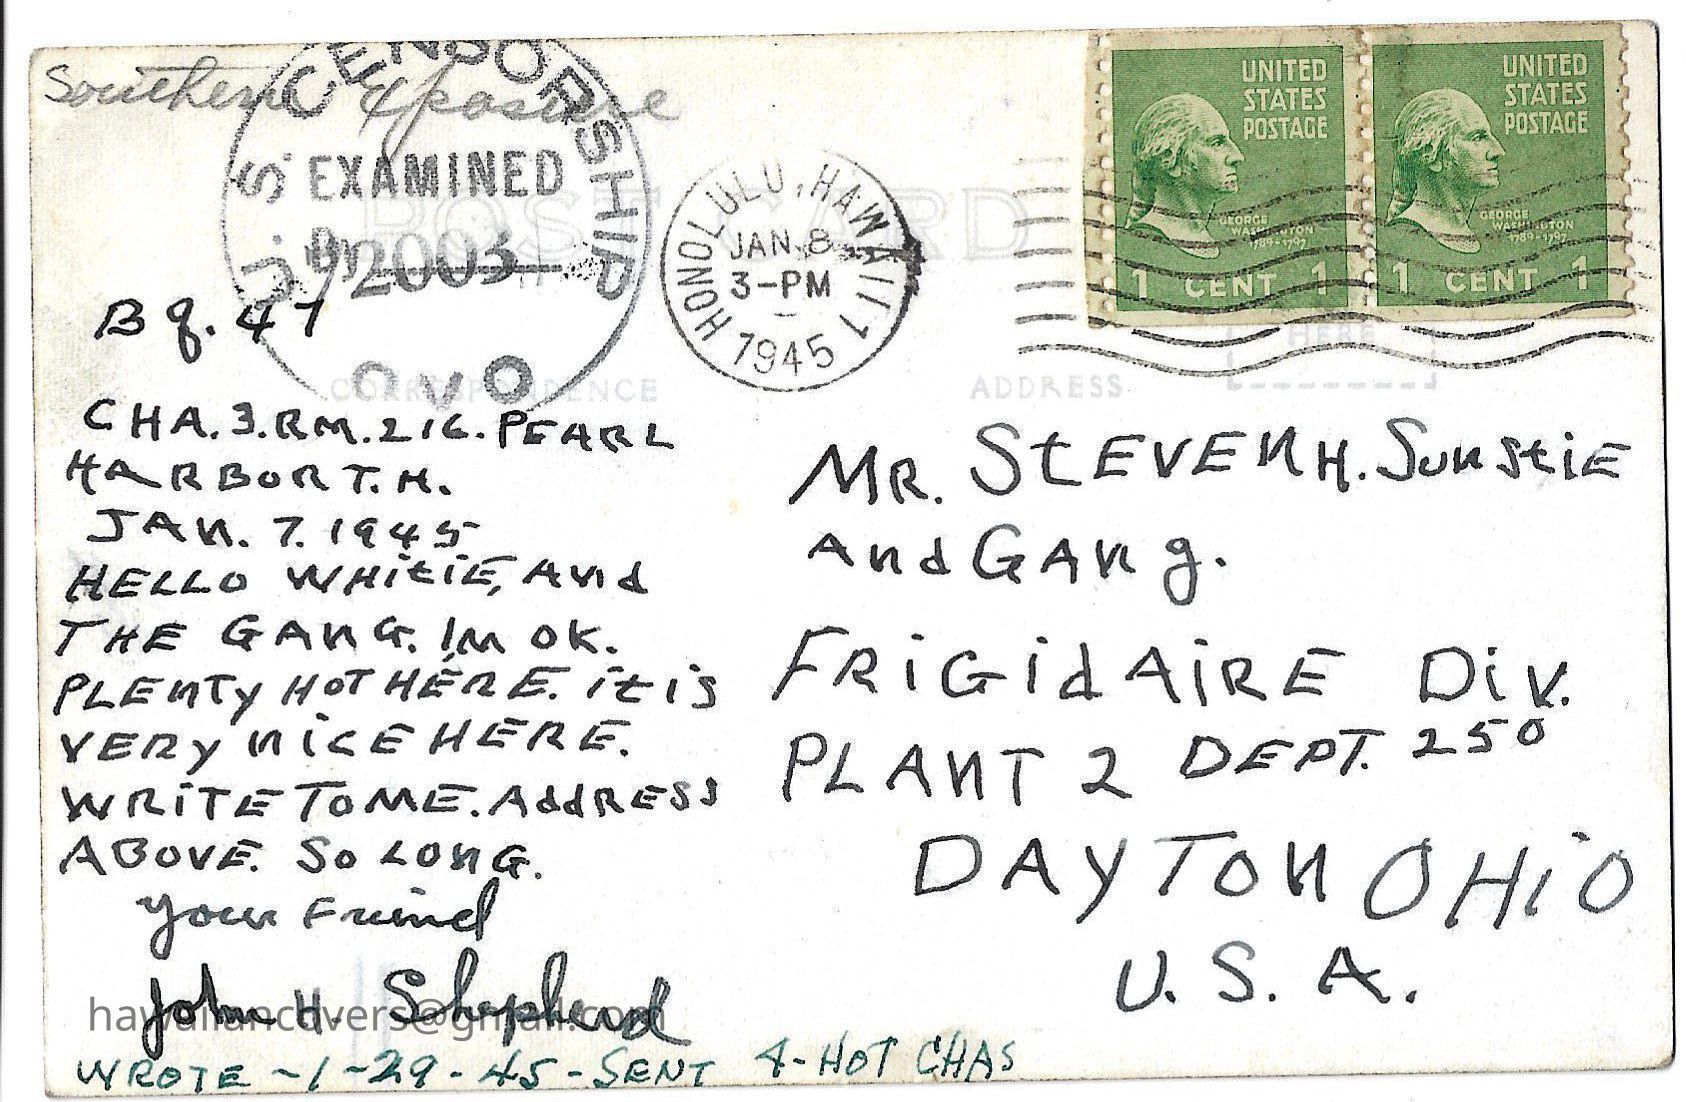 Southern Exposure
U.S. CENSORSHIP
EXAMINED
By 12003
POST CARD
HONOLULU, HAWAII 1
JAN 8
3-PM
1945
UNITED
STATES
POSTAGE
GEORGE
WASHINGTON
1789-1797
1 CENT 1
UNITED
STATES
POSTAGE
GEORGE
WASHINGTON
1789-1797
1 CENT 1
HERE
CORRESPONDENCE
ADDRESS
Bq. 47
CHA.3.RM.216.PEARL
HARBOR T.H.
JAN. 7. 1945
HELLO WHitiE, And
THE GANG. IM OK.
PLENTY HOT HERE. it is
VERY NICE HERE.
WRITE TO ME. AddRESS
ABOVE. SO LONG.
Your Friend
John H. Shepherd
MR. StEVEN H. SunstiE
And GANg.
FRiGidAiRE Div.
PLANT 2 DEPT. 250
DAYTON OHiO
U.S.A.
hawaiiancovers@gmail.com
WROTE - 1-29-45 - SENT 4-HOT CHAS